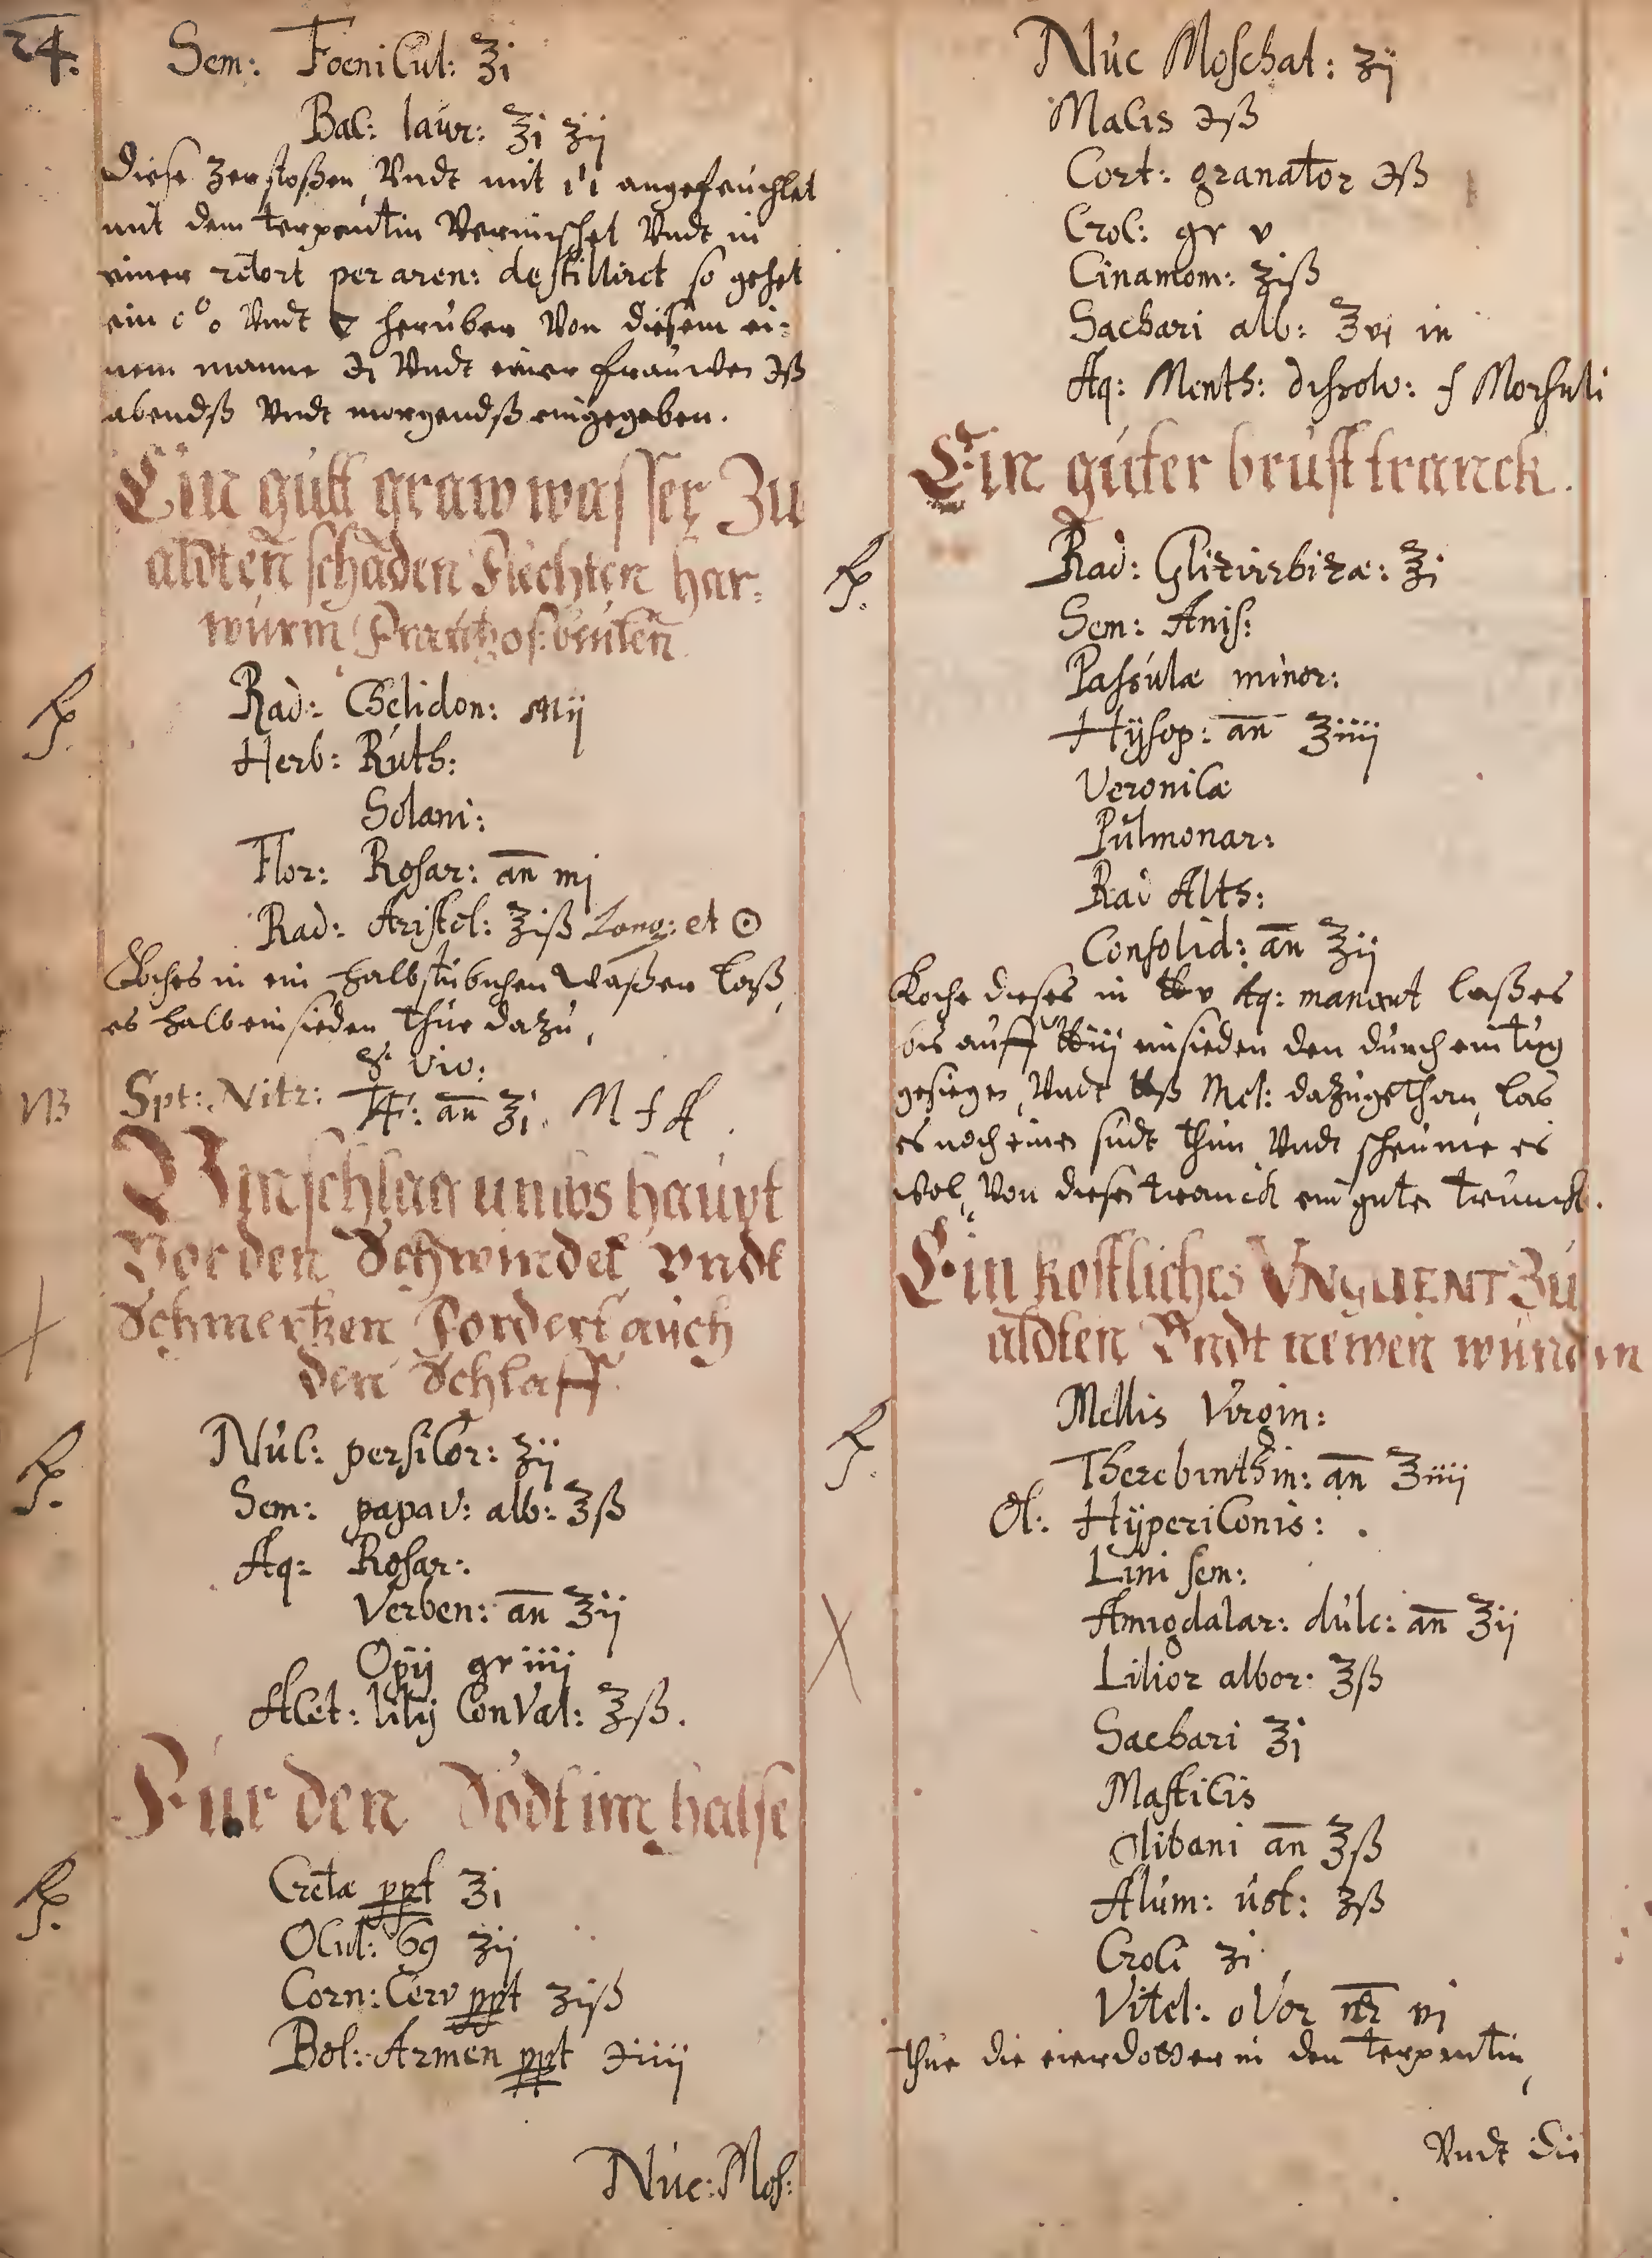 24.
Sem: Foenicul: ℥i
Bac: laur: ℥i ʒij
Diese zerstoßen, Vndt mit angefeuchtet
mit dem terpentin Vermischet Vndt in
einer retort per aren: destillirct so gehet
ein Vndt herüber Von diesem ei-
nem manne ℈i Vndt einer frauwen ℈ß
abendß Vndt morgendß eingegeben.
Ein gutt graw wasser Zu
aldten schaden Flechten har-
wurm Frantzos: beulen
℞. Rad: Chelidon: Mij
Herb: Ruth:
Solani:
Flor: Rosar: an̄ mj
Rad: Aristol: ʒiß Long: et ☉
Koches in ein halbstübichen Waßer laß
es halb einsieden thue dazu,
☿ viv:
NB Spt: Nitr: an̄ ℥i. M f
Vmschlag umbs haupt
Vor den Schwindel vndt
Schmertzen fordert auch
den Schlaff
℞. Nuc: persicor: ʒij
Sem: papav: alb: ℥ß
Aq: Rosar:
Verben: an̄ ℥ij
Opij gr iiij
Acet: lilij ConVal: ℥ß.
Fur den Sodt im halse
℞. Cretæ ppt ℥i
Ocul: 69 ʒij
Corn: Cerv ppt ʒiß
Bol: Armen ppt ℈iiij
Nuc: Mos:
Nuc Moschat: ʒij
Macis ℈ß
Cort: granator ℈ß
Croc: gr v
Cinamom: ʒiß
Sachari alb: ℥vi in
Aq: Menth: dissolv: f Morsuli
Ein guter brust tranck.
℞. Rad: Glizirrhizæ: ℥i
Sem: Anis:
Passulæ minor:
Hÿsop: an̄ ℥iiij
Veronicæ
Pulmonar:
Rad Alth:
Consolid: an̄ ℥ij
Koche dieses in ℔v Aq: laß es
bis auff ℔iij einsieden den durch ein tug
gesiegen, Vndt ℔ß Mel: dazu gethan, las
es noch einen sudt thun Vndt scheume es
wol, Von diesen tranck ein guten trunck.
Ein kostliches VNGUENT Zu
aldten Vndt newen wunden
℞. Mellis Virgin:
Therebinthin: an̄ ℥iiij
Ol: Hÿpericonis:
Lini sem:
Amigdalar: dulc: an̄ ℥ij
Lilior albor: ℥ß
Sachari ℥i
Masticis
Olibani an̄ ℥ß
Alum: ust: ʒß
Croci ʒi
Vitel: oVor nr̄ vi
thue die eierdotter in den terpentin,
Vndt die